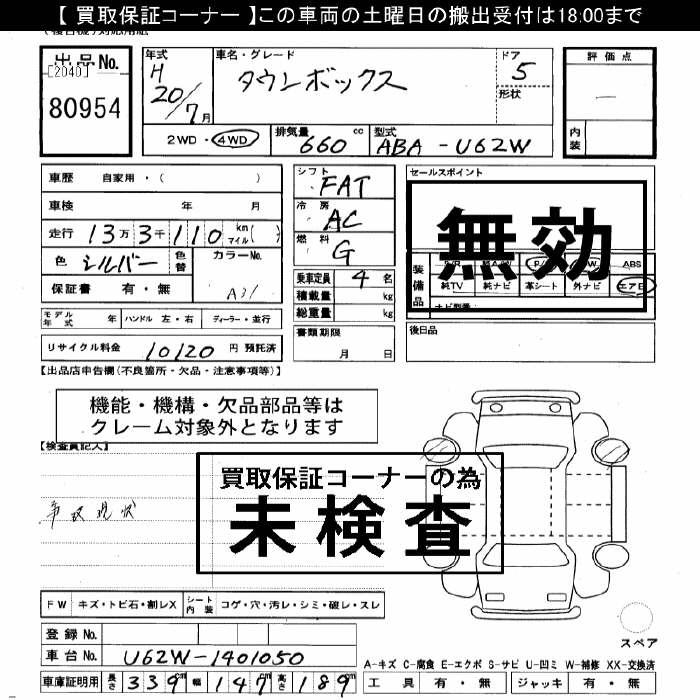 【 買取保証コーナー 】この車両の土曜日の搬出受付は18:00まで
出品No.
[2040]
80954
年式
H
20/7月
車名・グレード
タウンボックス
ドア
5
形状
評価点
内装
2WD・4WD
排気量
660 cc
型式
ABA-U62W
車歴 自家用・( )
車検 年 月
走行 13万3千110 km マイル( )
色 シルバー
色替
カラーNo.
A31
保証書 有・無
モデル年式 年
ハンドル 左・右
ディーラー・並行
リサイクル料金 10120 円 預託済
シフト
FAT
冷房
AC
燃料
G
乗車定員 4 名
積載量 kg
総重量 kg
書類期限
月 日
セールスポイント
無効
装備品
ABS
純TV
純ナビ
革シート
外ナビ
エアB
後日品
【出品店申告欄(不良箇所・欠品・注意事項等)】
機能・機構・欠品部品等は
クレーム対象外となります
【検査員記入】
買取保証コーナーの為
未検査
事故現状
FW
キズ・トビ石・割レX
シート内装
コゲ・穴・汚レ・シミ・破レ・スレ
登録No.
車台No.
U62W-1401050
車庫証明用
長さ 339m
幅 147m
高さ 189m
スペア
A-キズ C-腐食 E-エクボ S-サビ U-凹ミ W-補修 XX-交換済
工具 有・無
ジャッキ 有・無